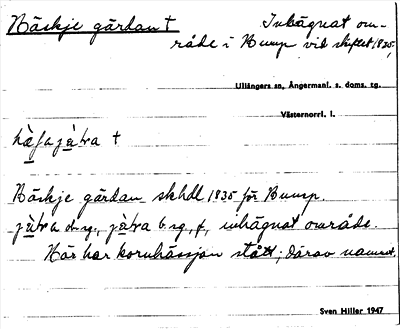 Häskje gärdan †
Inhägnat om-
råde i Rump vid skiftet 1835,
Ullångers sn, Ångermanl. s. doms. tg.
Västernorrl. l.
†
Häskje gärdan skhdl 1835 för Rump.
sg., sg., f., inhägnat område.
Här har kornhässjan stått; därav namnet.
Sven Hiller 1947